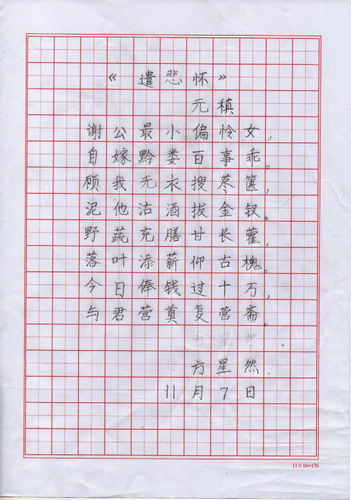 《遣悲怀》
元稹
谢公最小偏怜女，
自嫁黔娄百事乖。
顾我无衣搜荩箧，
泥他沽酒拔金钗。
野蔬充膳甘长藿，
落叶添薪仰古槐。
今日俸钱过十万，
与君营奠复营斋。
方星然
11月7日
11×16=176